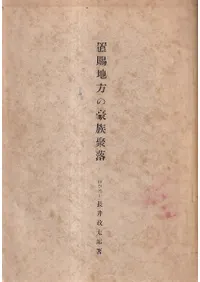 置賜地方の豪族聚落
長井政太郎著